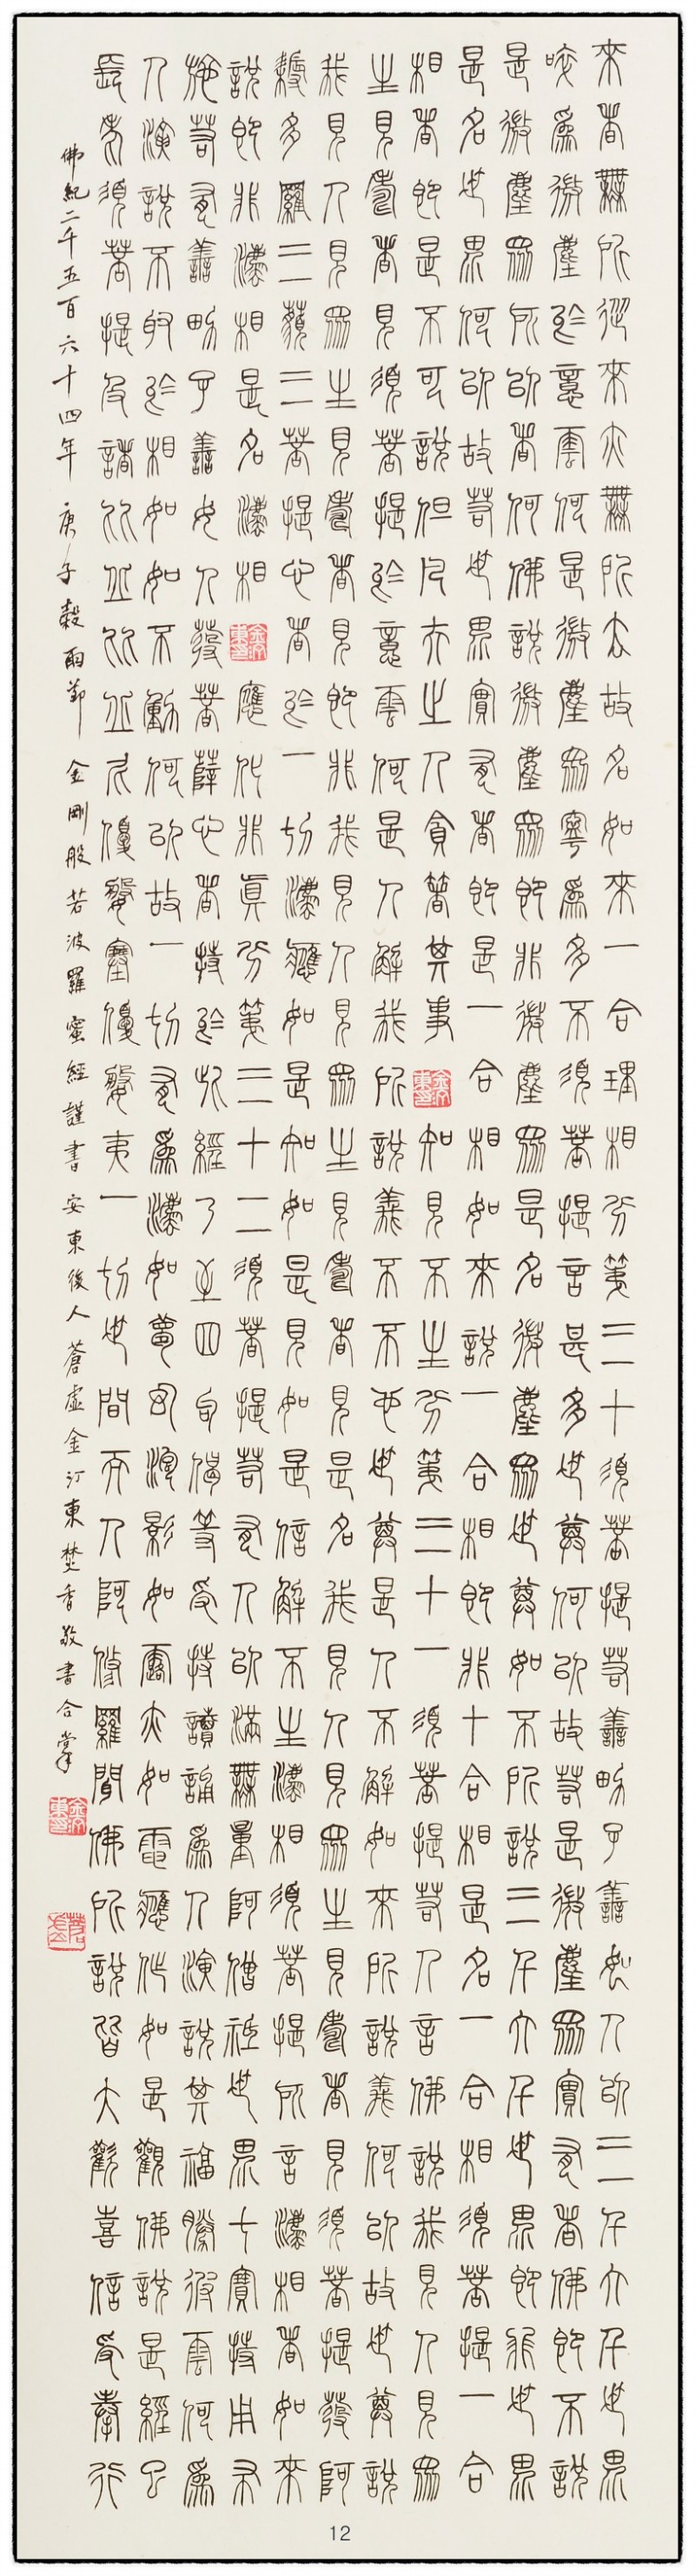 來者無所從來亦無所去故名如來一合理相分第三十須菩提若善男子善女人以三千大千世界
碎為微塵於意雲何是微塵眾寧為多不須菩提言甚多世尊何以故若是微塵眾實有者佛即不說
是微塵眾所以者何佛說微塵眾即非微塵眾是名微塵眾世尊如不所說三千大千世界即非世界
是名世界何以故若世界實有者即是一合相如來說一合相即非十合相是名一合相須菩提一合
相者即是不可說但凡夫之人貪著其事知見不生分第三十一須菩提若人言佛說我見人見眾
生見壽者見須菩提於意雲何是人解我所說義不不也世尊是人不解如來所說義何以故世尊說
我見人見眾生見壽者見即非我見人見眾生見壽者見是名我見人見眾生見壽者見須菩提發阿
耨多羅三藐三菩提心者於一切法應如是知如是見如是信解不生法相須菩提所言法相者如來
說即非法相是名法相應化非真分第三十二須菩提若有人以滿無量阿僧祇世界七寶持用布
施若有善男子善女人發菩薩心者持於此經乃至四句偈等受持讀誦為人演說其福勝彼雲何為
人演說不取於相如如不動何以故一切有為法如夢幻泡影如露亦如電應作如是觀佛說是經已
長老須菩提及諸比丘比丘尼優婆塞優婆夷一切世間天人阿修羅聞佛所說皆大歡喜信受奉行
佛紀二千五百六十四年 庚子穀雨節 金剛般若波羅蜜經謹書 安東後人蒼虛金汀東焚香敬書合掌
12